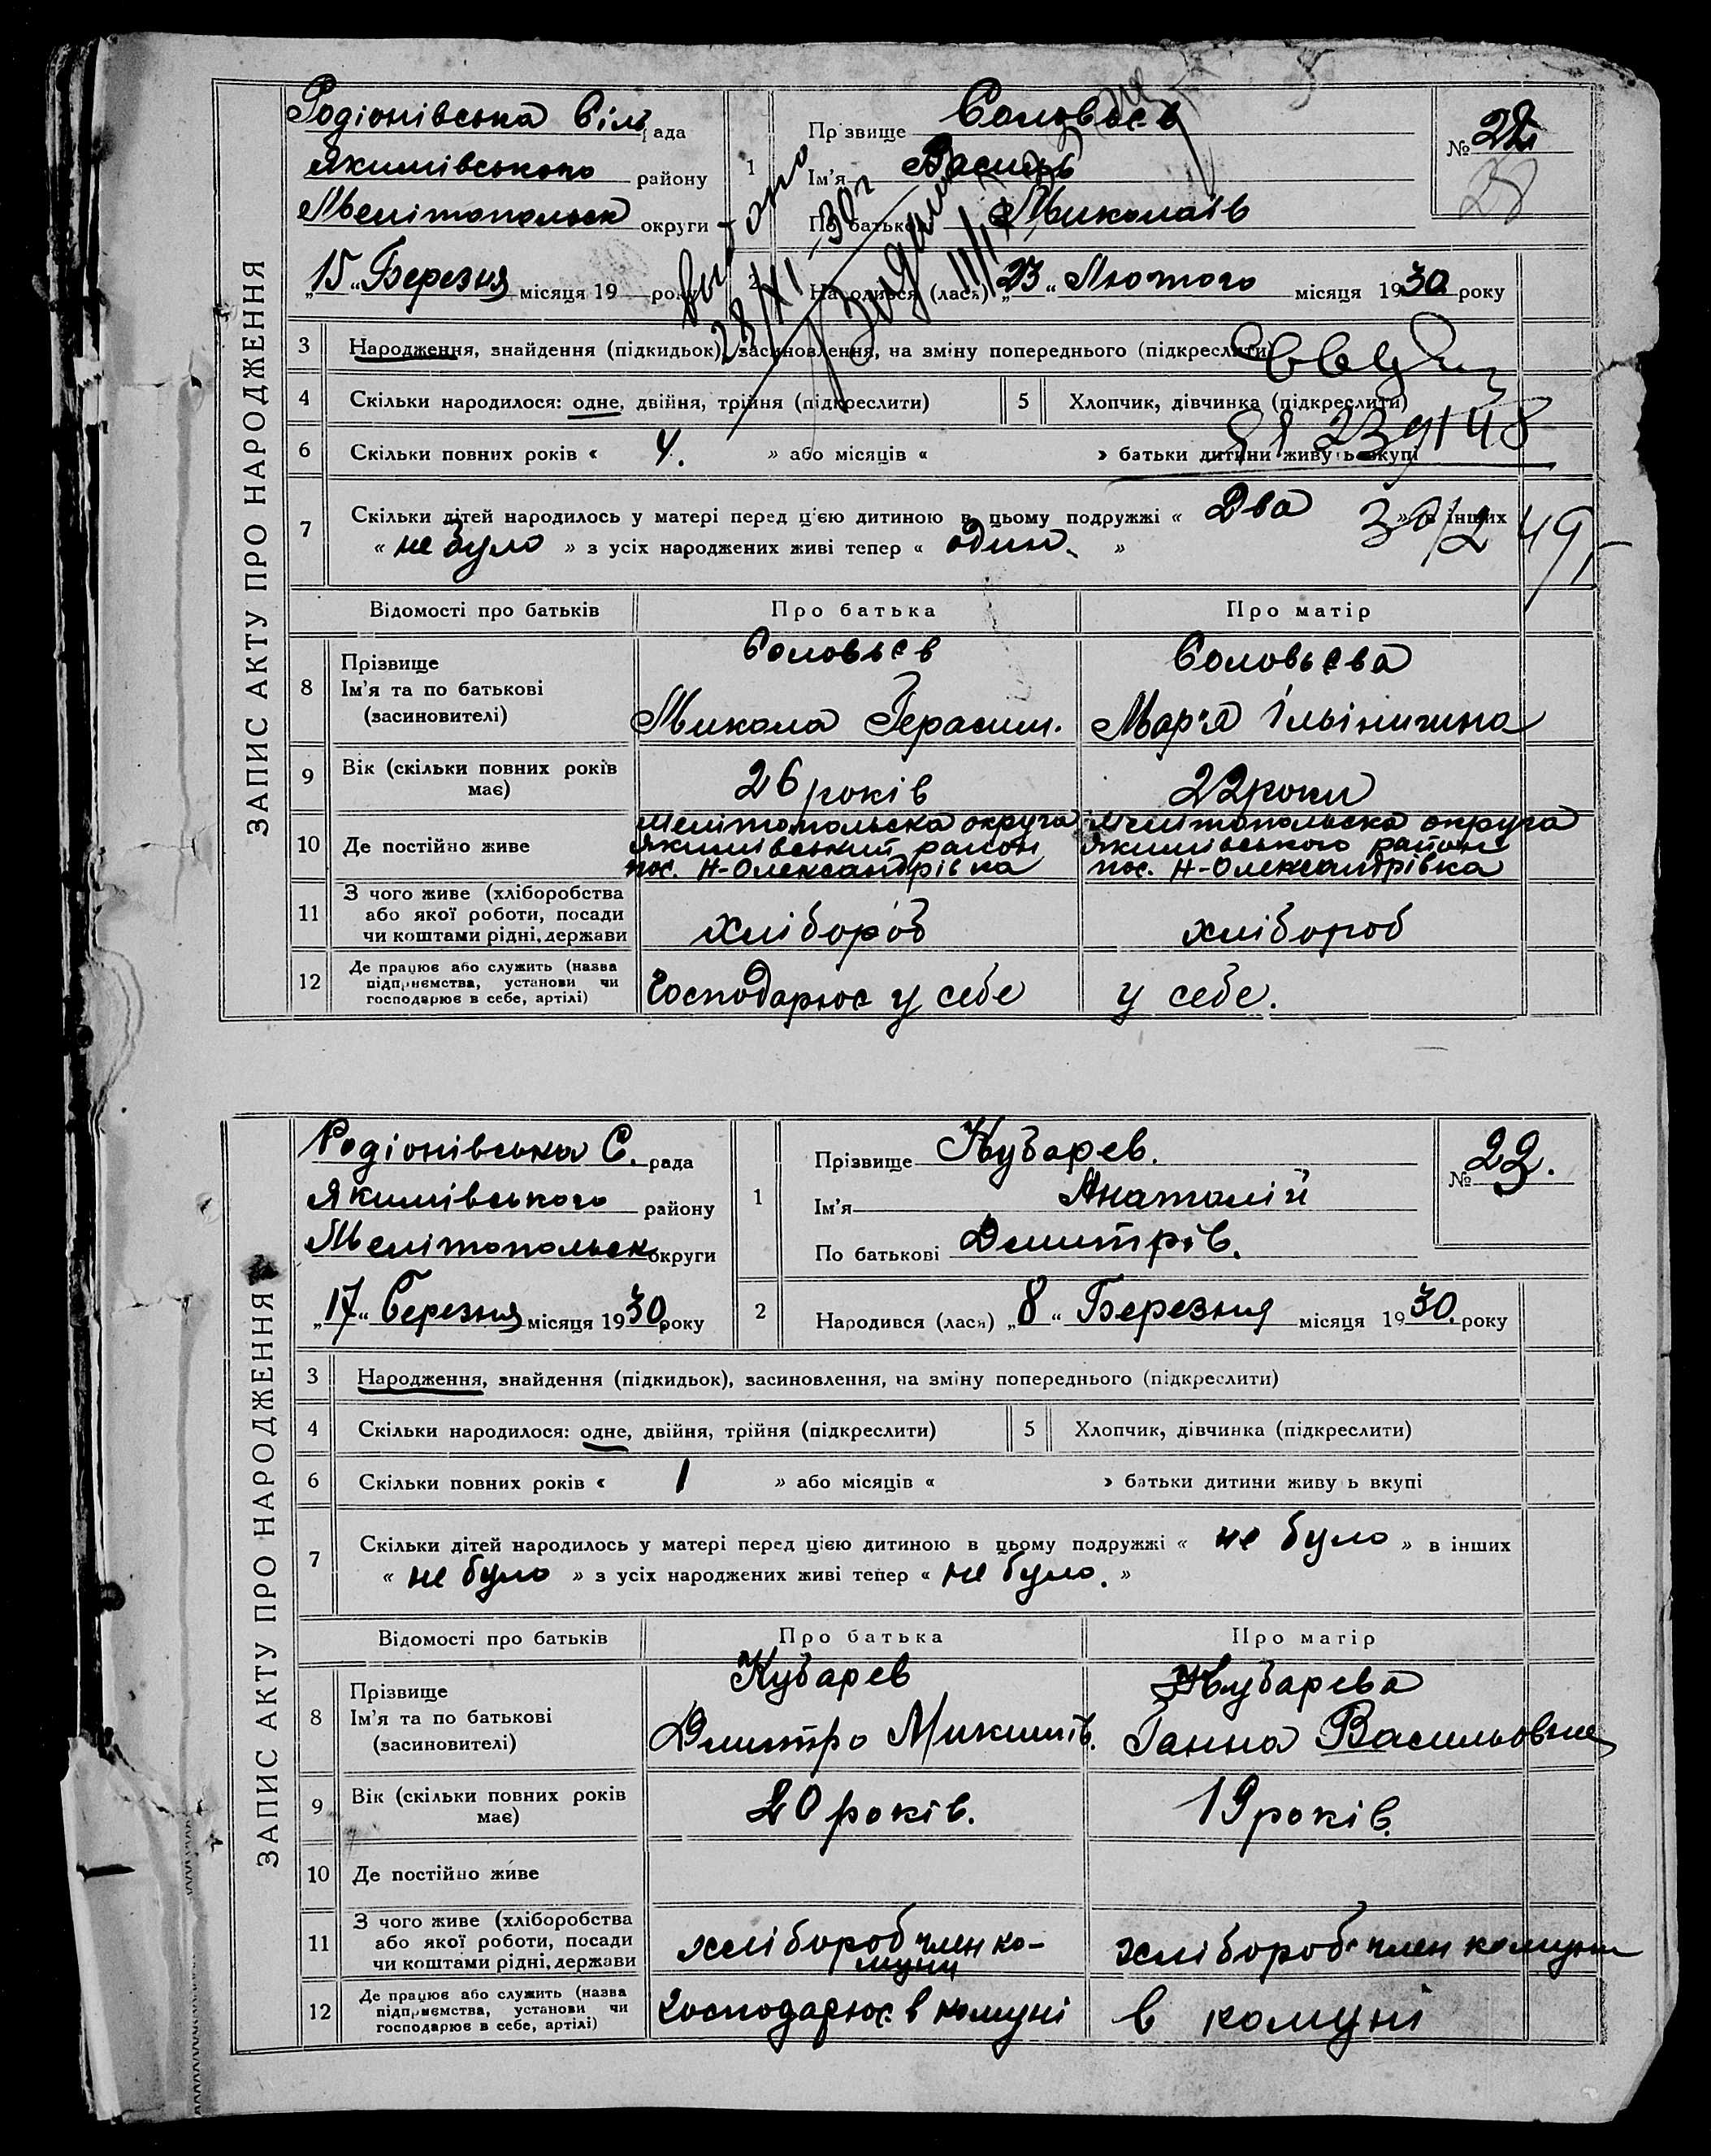 ЗАПИС АКТУ ПРО НАРОДЖЕННЯ
Родіонівська Сіль рада
Якимівського району
Мелітопольськ округи
„15“ Березня місяця 19 року
1 Прізвище Соловьєв
Ім'я Василь
По батькові Миколаів
№ 22
28
2 Народився (лася) „23“ Лютого місяця 1930 року
28/XI-30 г
3 Народження, знайдення (підкидьок), засиновлення, на зміну попереднього (підкреслити)
4 Скільки народилося: одне, двійня, трійня (підкреслити) 5 Хлопчик, дівчинка (підкреслити)
239148
6 Скільки повних років « 4. » або місяців « » батьки дитини живуть вкупі
7 Скільки дітей народилось у матері перед цією дитиною в цьому подружжі « Два » в інших
« не було » з усіх народжених живі тепер « один. »
Відомості про батьків Про батька Про матір
8 Прізвище
Ім'я та по батькові
(засиновителі)
Соловьєв
Микола Герасим.
Соловьєва
Мар'я Ільінична
9 Вік (скільки повних років має) 26 років 22 роки
10 Де постійно живе
Мелітопольска округа
Якимівський район
пос. Н-Олександрівка
Мелітопольска округа
Якимівського район
пос. Н-Олександрівка
11 З чого живе (хліборобства
або якої роботи, посади
чи коштами рідні, держави
хлібороб хлібороб
12 Де працює або служить (назва
підприємства, установи чи
господарює в себе, артілі)
Господарює у себе у себе.
ЗАПИС АКТУ ПРО НАРОДЖЕННЯ
Родіонівська С. рада
Якимівського району
Мелітопольськ округи
„17“ Березня місяця 1930 року
1 Прізвище Кубарев.
Ім'я Анатолій
По батькові Дмитрів.
№ 23.
2 Народився (лася) „8“ Березня місяця 1930. року
3 Народження, знайдення (підкидьок), засиновлення, на зміну попереднього (підкреслити)
4 Скільки народилося: одне, двійня, трійня (підкреслити) 5 Хлопчик, дівчинка (підкреслити)
6 Скільки повних років « 1 » або місяців « » батьки дитини живуть вкупі
7 Скільки дітей народилось у матері перед цією дитиною в цьому подружжі « не було » в інших
« не було » з усіх народжених живі тепер « не було. »
Відомості про батьків Про батька Про матір
8 Прізвище
Ім'я та по батькові
(засиновителі)
Кубарев
Дмитро Микитів.
Кубарева
Ганна Васильовна
9 Вік (скільки повних років має) 20 років. 19 років.
10 Де постійно живе
11 З чого живе (хліборобства
або якої роботи, посади
чи коштами рідні, держави
хлібороб член ко-
муни
хлібороб член комуни
12 Де працює або служить (назва
підприємства, установи чи
господарює в себе, артілі)
Господарює в комуні в комуні